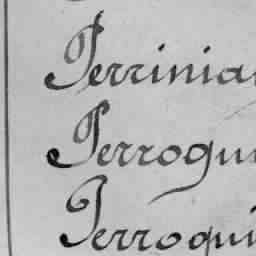 Perrinia
Perrogu
Perroqui